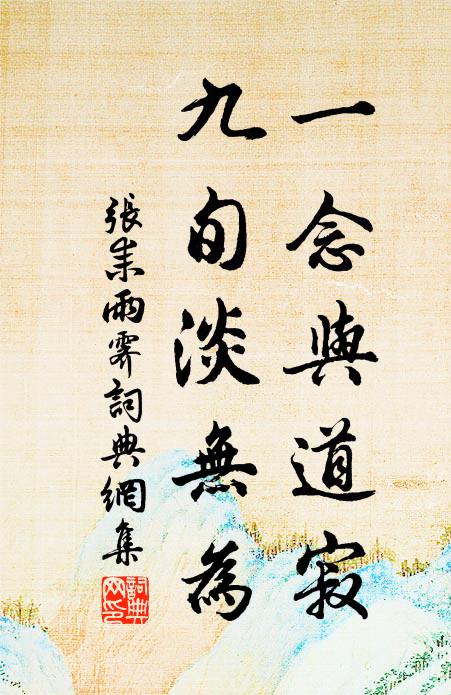 一念與道寂
九旬淡無為
張耒雨霽詞典網集
詞典